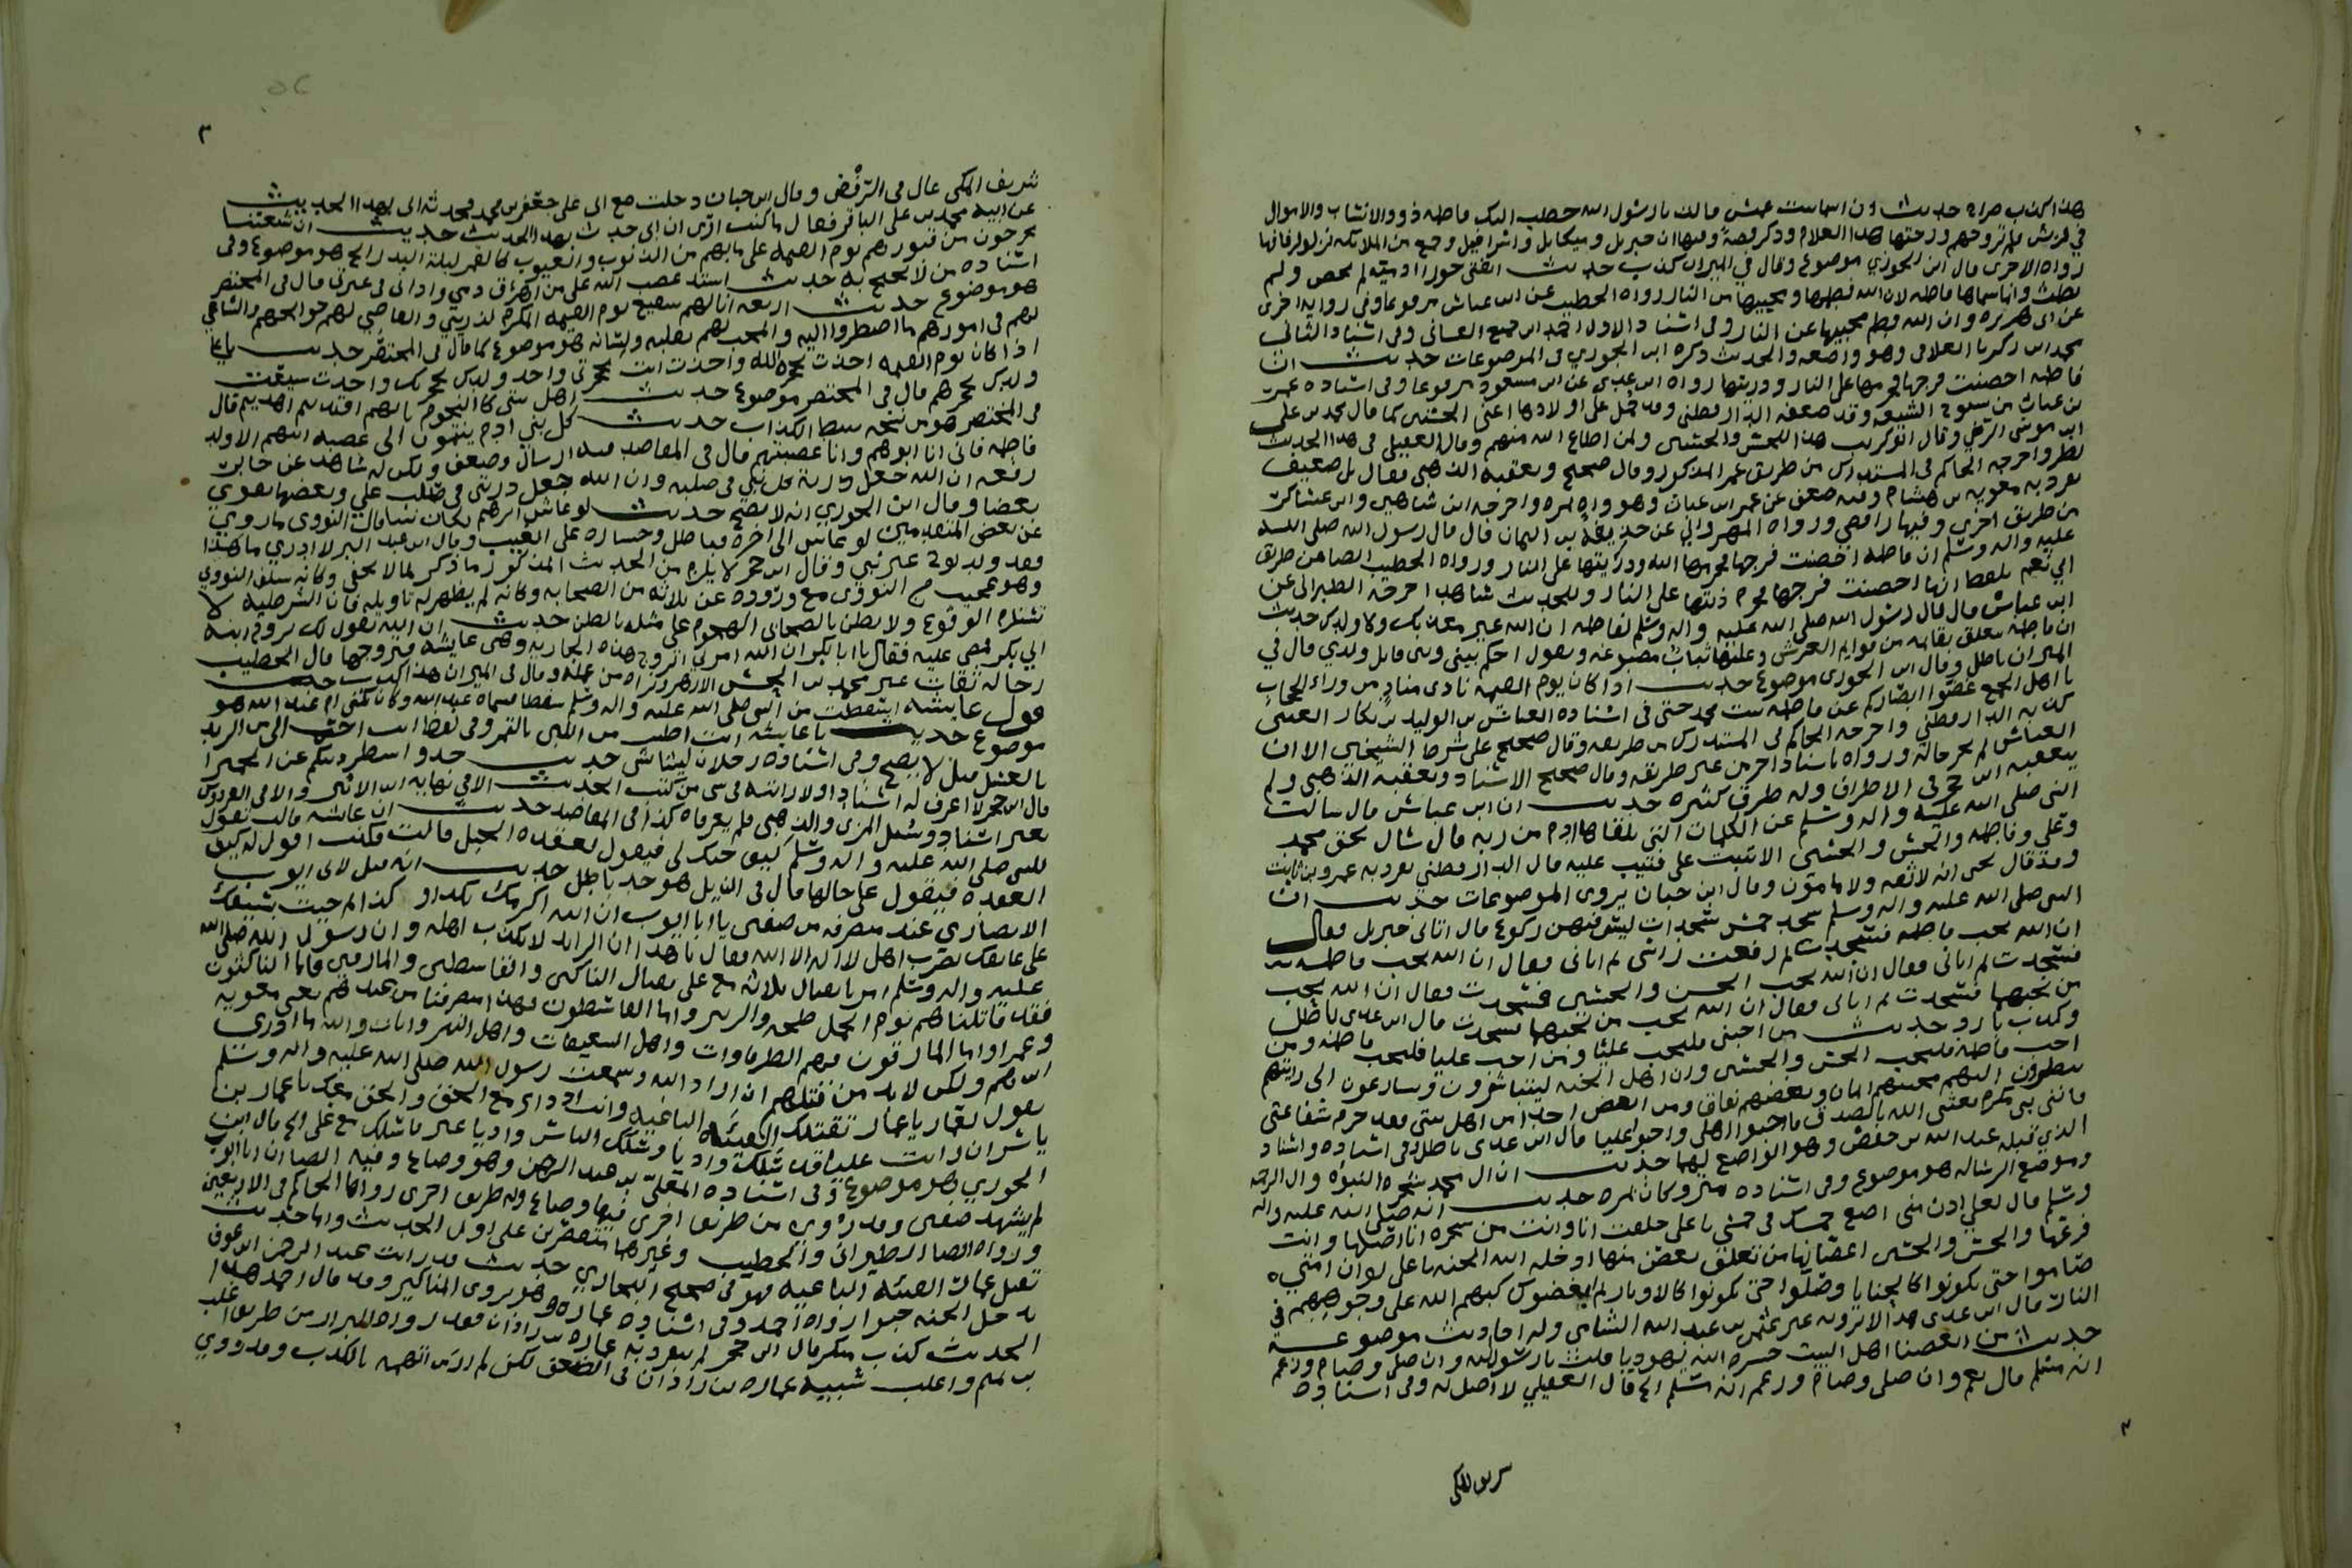 هذا كذب صراح حديث ان اسما بنت عميس قالت يا رسول الله خطب اليك فاطمة ذوو الاسنان والاموال
في قريش فلم تزوجهم وزوجتها هذا الغلام وذكر قصة وفيها ان جبريل وميكائيل واسرافيل وجمع من الملائكة
قال ابن الجوزي موضوع وقال في الميزان كذب حديث ابنتي حورا ادمية لم تحض ولم
تطمث وانما سماها فاطمة لان الله فطمها ومحبيها من النار رواه الخطيب عن ابن عباس مرفوعا وفي رواية اخرى
عن ابي هريرة وان الله فطم محبيها عن النار وفي اسناد الاول احمد بن جميع الغساني وفي اسناد الثاني
محمد بن زكريا الغلابي وهو واضعه والحديث ذكره ابن الجوزي في الموضوعات حديث ان
فاطمة احصنت فرجها فحرمها على النار وذريتها رواه ابن عدي عن ابن مسعود مرفوعا وفي اسناده عمر
بن غياث من شيوخ الشيعة وقد ضعفه الدارقطني وقد حمل على اولادها اعني الحسنين كما قال محمد بن علي
ابن موسى الرضي وقال ابو كريب هذا للحسن والحسين ولمن اطاع الله منهم وقال العقيلي في هذا الحديث
نظر واخرجه الحاكم في المستدرك من طريق عمر المذكور وقال صحيح وتعقبه الذهبي فقال بل ضعيف
تفرد به معوية بن هشام وفيه ضعف عن عمر بن غياث وهو واه بمرة واخرجه ابن شاهين وابن عساكر
من طريق اخرى وفيها رافضي ورواه المهرواني عن حذيفة بن اليمان قال قال رسول الله صلى الله
عليه واله وسلم ان فاطمة احصنت فرجها فحرمها الله وذريتها على النار ورواه الخطيب ايضا من طريق
ابي نعيم بلفظ انها احصنت فرجها فحرم ذريتها على النار وللحديث شاهد اخرجه الطبراني عن
ابن عباس قال قال رسول الله صلى الله عليه واله وسلم لفاطمة ان الله غير معذبك ولا ولدك حديث
ان فاطمة تعلق بقائمة من قوايم العرش وعليها ثياب مصبوغة وتقول احكم بيني وبين قاتل ولدي قال في
الميزان باطل وقال ابن الجوزي موضوع حديث اذا كان يوم القيمة نادى مناد من وراء الحجاب
يا اهل الجمع غضوا ابصاركم عن فاطمة بنت محمد حتى في اسناده العباس بن الوليد بن بكار الضبي
كذبه الدارقطني واخرجه الحاكم في المستدرك من طريقه وقال صحيح على شرط الشيخين الا ان
العباس لم يخرجاله ورواه باسناد اخر من غير طريقه وقال صحيح الاسناد وتعقبه الذهبي ولم
يتعقبه ابن حجر في الاطراف وله طرق كثيرة حديث ان ابن عباس قال سالت
النبي صلى الله عليه واله وسلم عن الكلمات التي تلقاها ادم من ربه قال سال بحق محمد
وعلي وفاطمة والحسن والحسين الا تبت علي فتيب عليه قال الدارقطني تفرد به عمرو بن ثابت
وقد قال يحيى انه لا ثقة ولا مامون وقال ابن حبان يروي الموضوعات حديث ان
النبي صلى الله عليه واله وسلم سجد خمس سجدات ليس فيهن ركوع قال اتاني جبريل فقال
ان الله يحب فاطمة فسجدت ثم رفعت راسي ثم اتاني فقال ان الله يحب
فسجدت ثم اتاني فقال ان الله يحب الحسن والحسين فسجدت وقال ان الله يحب
من يحبهما فسجدت ثم اتاني فقال ان الله يحب من يحبها فسجدت قال ابن عدي باطل
وكذب بارد حديث من احبني فليحب عليا ومن احب عليا فليحب فاطمة ومن
احب فاطمة فليحب الحسن والحسين وان اهل الجنة ليتباشرون ويسارعون الى رؤيتهم
ينظرون اليهم محبتهم ايمان وبغضهم نفاق ومن ابغض احدا من اهل بيتي فقد حرم شفاعتي
فانني نبي مكرم بعثني الله بالصدق فاحبوا اهلي واحبوا عليا قال ابن عدي باطل وفي اسناده واسناد
الذي قبله عبد الله بن حفص وهو الواضع لهما حديث ان ال محمد شجرة النبوة وال الرحمة
وموضع الرسالة هو موضوع وفي اسناده حديث انه صلى الله عليه واله
وسلم قال لعلي ادن مني اضع خمسك في خمسي يا علي خلقت انا وانت من شجرة انا اصلها وانت
فرعها والحسن والحسين اغصانها من تعلق بغصن منها ادخله الله الجنة يا علي لو ان امتي
صاموا حتى يكونوا كالحنايا وصلوا حتى يكونوا كالاوتار ثم ابغضوك كبهم الله على وجوههم في
النار قال ابن عدي هذا لا يرويه غير عثمن بن عبد الله الشامي وله احاديث موضوعة
حديث من ابغضنا اهل البيت حشره الله يهوديا قلت يا رسول الله وان صلى وصام وزعم
انه مسلم قال نعم وان صلى وصام وزعم انه مسلم الخ قال العقيلي لا اصل له وفي اسناده
سريف المكي
٣
شريف المكي غال في الرفض وقال ابن حبان دخلت مع ابي على جعفر بن محمد فحدثه ابي بهذا الحديث
عن ابيه محمد بن علي الباقر فقال ما كنت ارى ان ابي حدث بهذا الحديث حديث ان شيعتنا
يخرجون من قبورهم يوم القيمة على ما بهم من الذنوب والعيوب كالقمر ليلة البدر الخ هو موضوع وفي
اسناده من لا يحتج به حديث اشتد غضب الله على من اهرق دمي واذاني في عترتي قال في المختصر
هو موضوع حديث اربعة انا لهم شفيع يوم القيمة المكرم لذريتي والقاضي لهم حوائجهم والساعي
لهم في امورهم ما اضطروا اليه والمحب لهم بقلبه ولسانه هو موضوع كما قال في المختصر حديث يا علي
اذا كان يوم القيمة اخذت بحجزة الله واخذت انت بحجزتي واخذ ولدك بحجزتك واخذت شيعت
ولدك بحجزهم قال في المختصر موضوع حديث اهل بيتي كالنجوم بايهم اقتديتم اهديتم قال
في المختصر هو من نسخة نبيط الكذاب حديث كل بني ادم ينتمون الى عصبة ابيهم الا ولد
فاطمة فاني انا ابوهم وانا عصبتهم قال في المقاصد فيه ارسال وضعف ولكن له شاهد عن جابر
رفعه ان الله جعل ذرية كل نبي في صلبه وان الله جعل ذريتي في صلب علي وبعضها يقوي
بعضا وقال ابن الجوزي انه لا يصح حديث لو عاش ابرهيم لكان نبيا قال النووي ما روي
عن بعض المتقدمين لو عاش الى اخره فباطل وجسارة على الغيب وقال ابن عبد البر لا ادري ما هذا
فقد ولد نوح غير نبي وقال ابن حجر لا يلزم من الحديث المذكور ما ذكر لما لا يخفى وكانه سلف النووي
وهو عجيب من النووي مع وروده عن ثلاثة من الصحابة وكانه لم يظهر له تاويله فان الشرطية لا
تستلزم الوقوع ولا يظن بالصحابي الهجوم على مثله بالظن حديث ان الله يقول لك تزوج ابنة
ابي بكر فمضى عليه فقال يا ابا بكر ان الله امرني اتزوج هذه الجارية وهي عايشة فتزوجها قال الخطيب
رجاله ثقات غير محمد بن الحسن الازهر ونراه من عمله وقال في الميزان هذا كذب حديث
قول عايشة اسقطت من النبي صلى الله عليه واله وسلم سقطا فسماه عبد الله وكان تكنى ام عبد الله هو
موضوع حديث يا عايشة انت اطيب من اللبى بالتمر وفي لفظ انت احب الي من الزبد
بالعسل قيل لا يصح وفي اسناده رجلان ليسا شي حديث خذوا شطر دينكم عن الحميرا
قال ابن حجر لا اعرف له اسنادا ولا رايته في شي من كتب الحديث الا في نهاية ابن الاثير والا في الفردوس
بغير اسناد وسئل المزي والذهبي فلم يعرفاه كذا في المقاصد حديث ان عائشة قالت تقول
للنبي صلى الله عليه واله وسلم كيف حبك لي فيقول كعقدة الحبل قالت فكنت اقول له كيف
العقدة فيقول على حالها قال في الذيل هو حديث باطل حديث انه قيل لابي ايوب
الانصاري عند منصرفه من صفين يا ابا ايوب ان الله اكرمك بكذا وكذا ثم جيت بسيفك
على عاتقك تضرب اهل لا اله الا الله فقال يا هذا ان الرايد لا يكذب اهله وان رسول الله صلى الله
عليه واله وسلم امرنا بقتال ثلاثة مع علي بقتال الناكثين والقاسطين والمارقين فاما الناكثون
فقد قاتلناهم يوم الجمل طلحة والزبير واما القاسطون فهذا منصرفنا من عندهم يعني معوية
وعمرا واما المارقون فهم اهل الطرفاوات واهل السعيفات واهل النهروانات والله ما ادري
اين هم ولكن لابد من قتلهم ان اراد الله وسمعت رسول الله صلى الله عليه واله وسلم
يقول لعمار يا عمار تقتلك الفئة الباغية وانت اذ ذاك مع الحق والحق معك يا عمار بن
ياسر ان رايت عليا قد سلك واديا وسلك الناس واديا غير فاسلك مع علي الخ قال ابن
الجوزي هو موضوع وفي اسناده المعلى بن عبد الرحمن وهو وضاع وفيه ايضا ان ابا ايوب
لم يشهد صفين وقد روي من طريق اخرى فيها وضاع وله طريق اخرى رواها الحاكم في الاربعين
ورواه ايضا الطبراني والخطيب وغيرهما مقتصرين على اول الحديث واما حديث
تقتل عمار الفئة الباغية فهو في صحيح البخاري حديث قد رايت عبد الرحمن بن عوف
يدخل الجنة حبوا رواه احمد وفي اسناده عمارة وهو يروي المناكير وقد قال احمد هذا
الحديث كذب منكر قال ابن حجر لم ينفرد به عمارة بن زاذان فقد رواه البزار من طريق اغلب
بن تميم واغلب شبيه عمارة بن زاذان في الضعف لكن لم ار من اتهمه بالكذب وقد روي